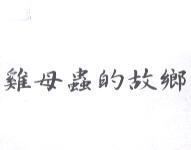 雞母蟲的故鄉